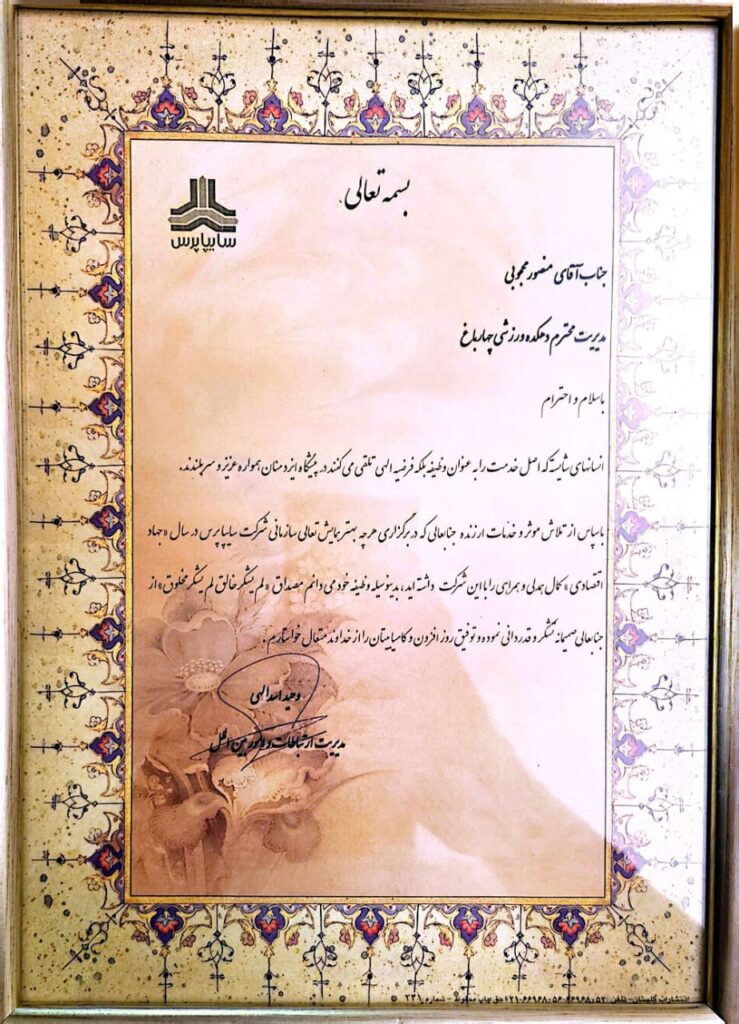 بسمه تعالی
سایپا پرس
جناب آقای منصور محجوبی
مدیریت محترم دهکده ورزشی چهارباغ
باسلام و احترام
انسانهای شایسته که اصل خدمت را به عنوان وظیفه بلکه فرضیه الهی تلقی می کنند در پیشگاه ایزد منان همواره عزیز و سربلندند.
باسپاس از تلاش موثر و خدمات ارزنده جنابعالی که در برگزاری هرچه بهتر همایش تعالی سازمانی شرکت سایپا پرس در سال «جهاد
اقتصادی» کمال همدلی و همراهی را با این شرکت داشته اید، بدینوسیله وظیفه خود می دانم مصداق «لم یشکر خالق لم یشکر مخلوق» از
جنابعالی صمیمانه تشکر و قدردانی نموده و توفیق روز افزون و کامیابیتان را از خداوند متعال خواستارم.
وحید اسدالهی
مدیریت ارتباطات و امور بین الملل
انتشارات گلستان - تلفن: ۵۲ ۶۶۹۶۸۰۵۶-۶۶۹۶۸۰ -۰۲۱ حق چاپ محفوظ - شماره ۲۳۱